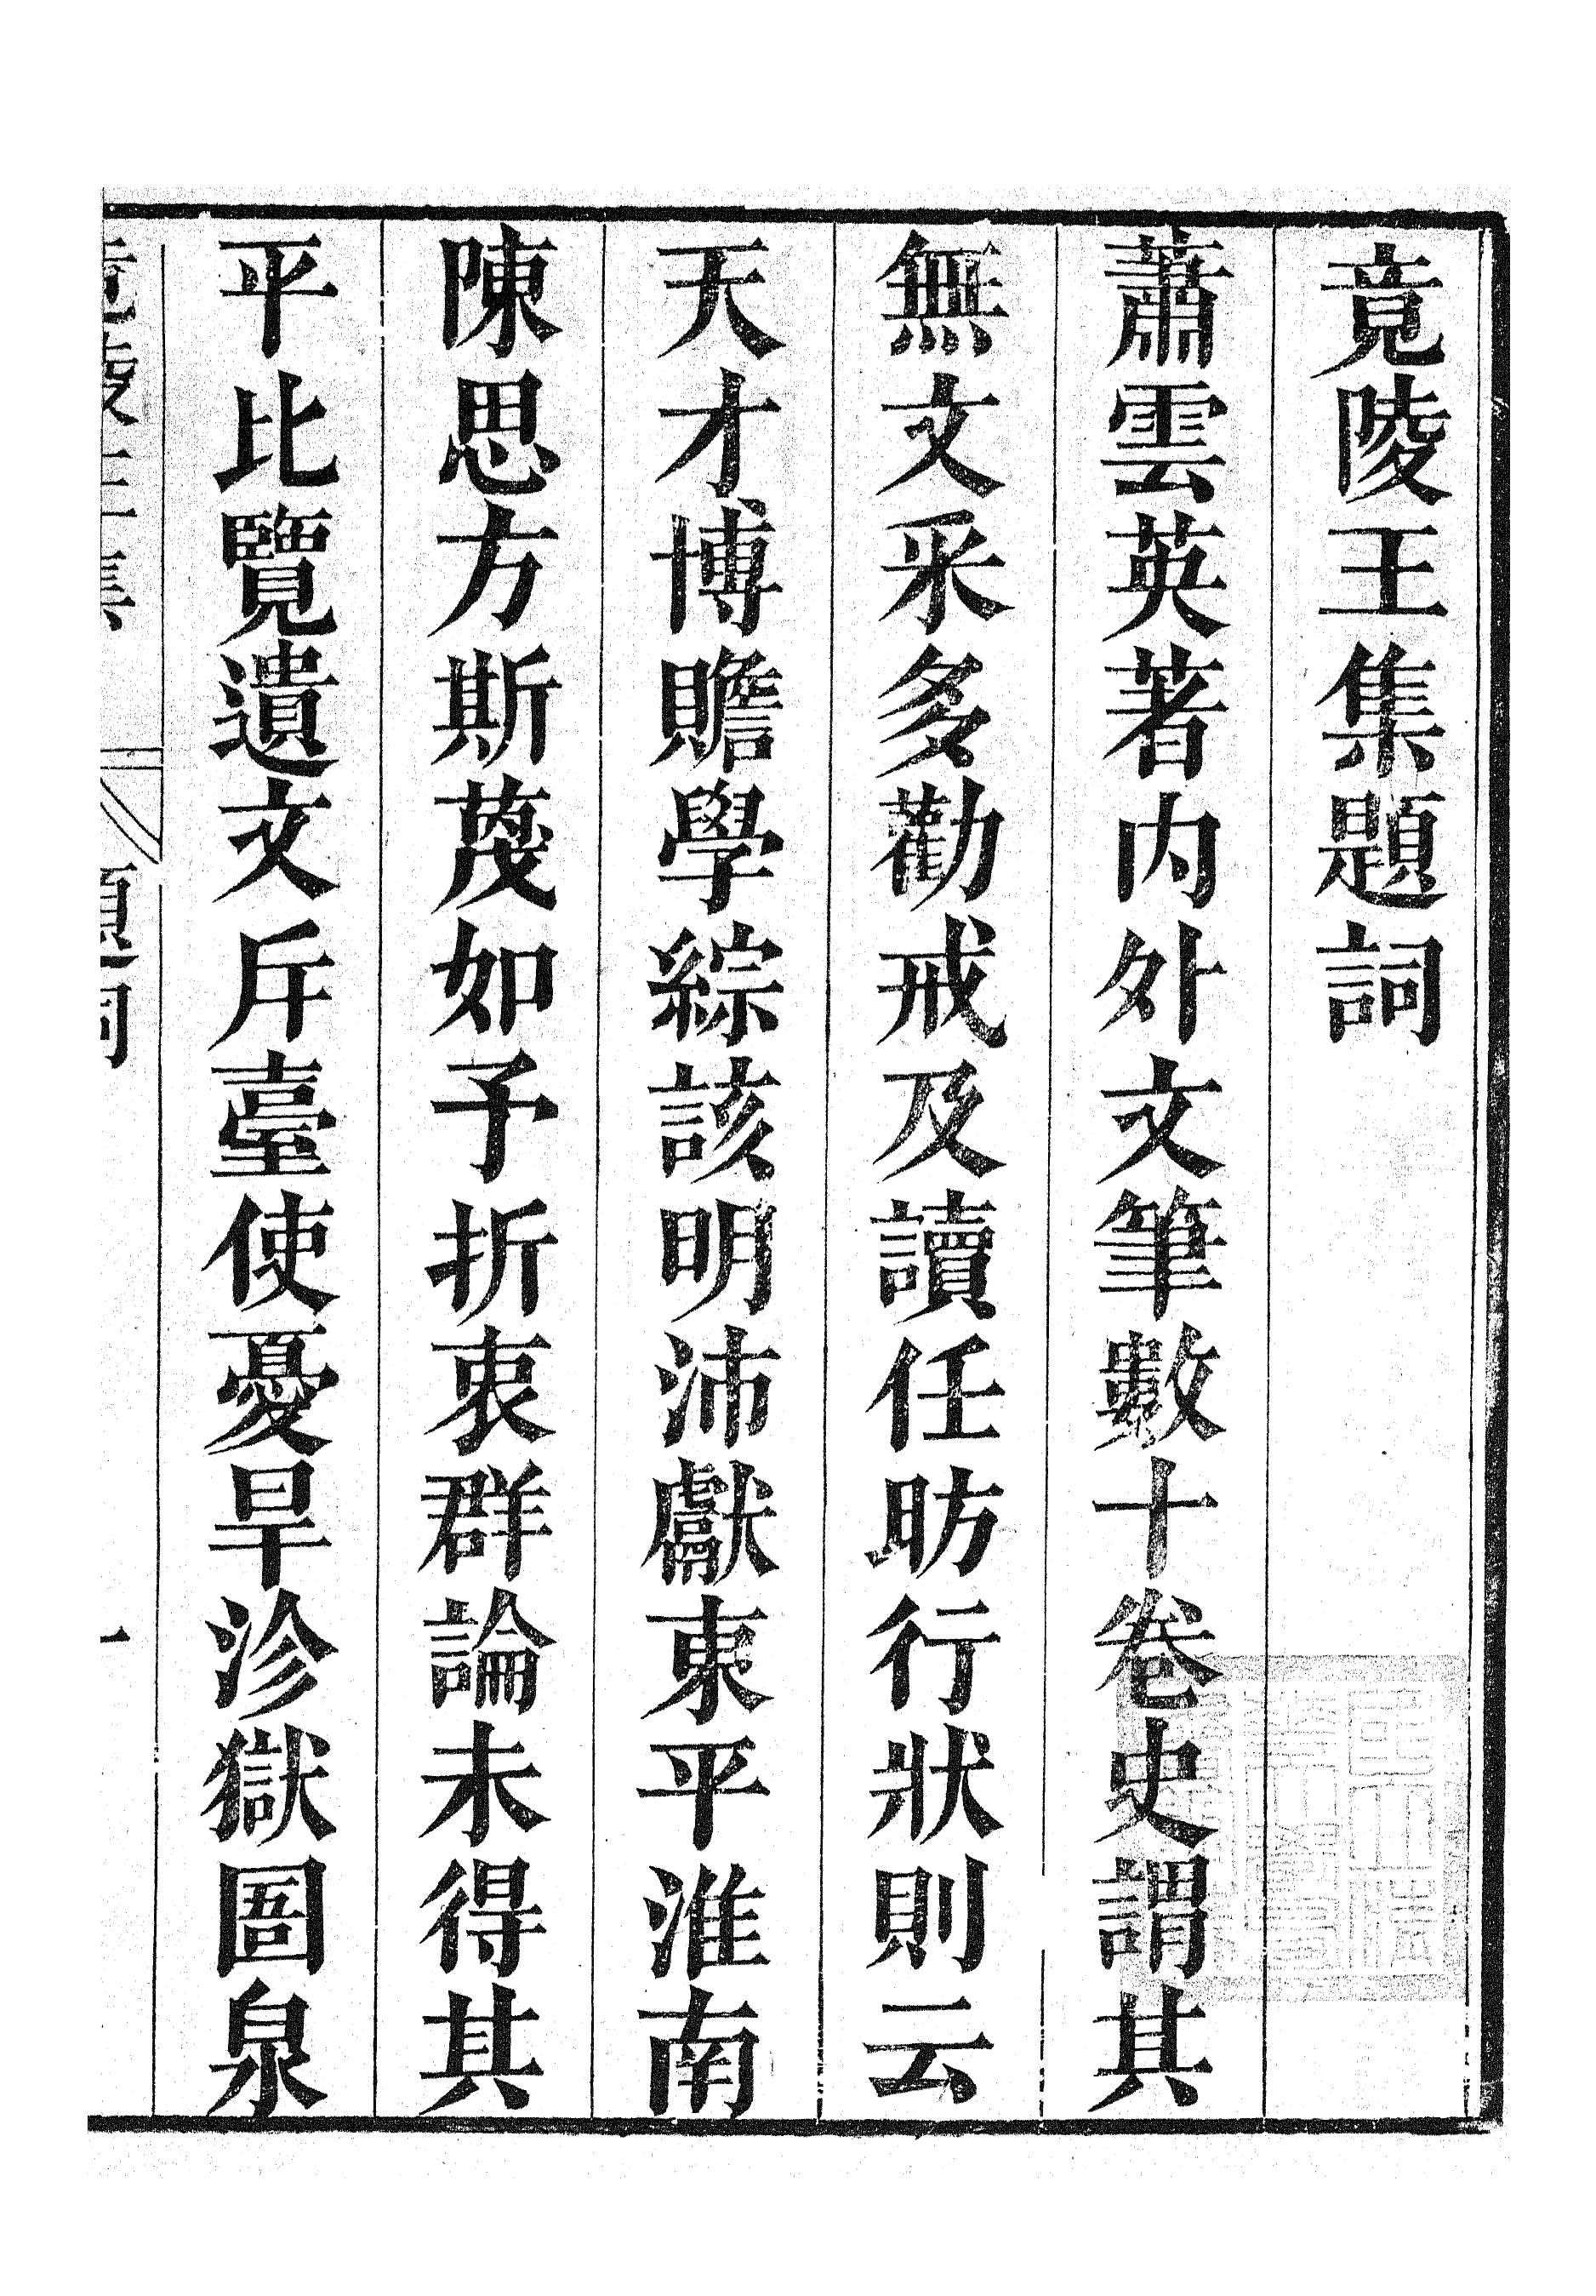 竟陵王集題詞
蕭雲英著内外文筆數十卷史謂其
無文采多勸戒及讀任昉行狀則云
天才博贍學綜該明沛獻東平淮南
陳思方斯蔑如予折衷群論未得其
平比覽遺文斥臺使憂旱沴獄圄泉
竟陵王集 題詞 一